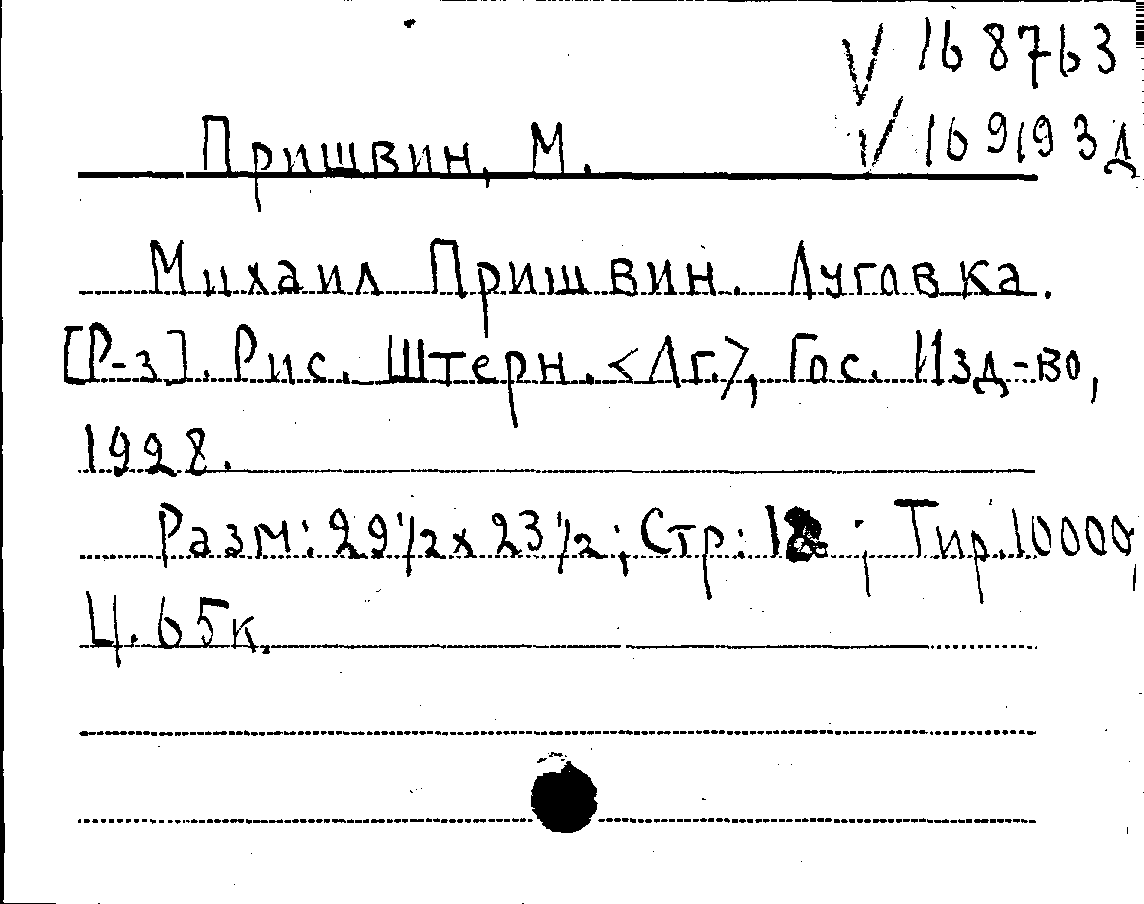 √ 168763
√ 169193д
Пришвин, М.
Михаил Пришвин. Луговка.
[Р-з]. Рис. Штерн. <Лг.>, Гос. Изд-во,
1928.
Разм: 29 1/2 х 23 1/2; Стр: 12 ; Тир. 10000,
Ц. 65к.